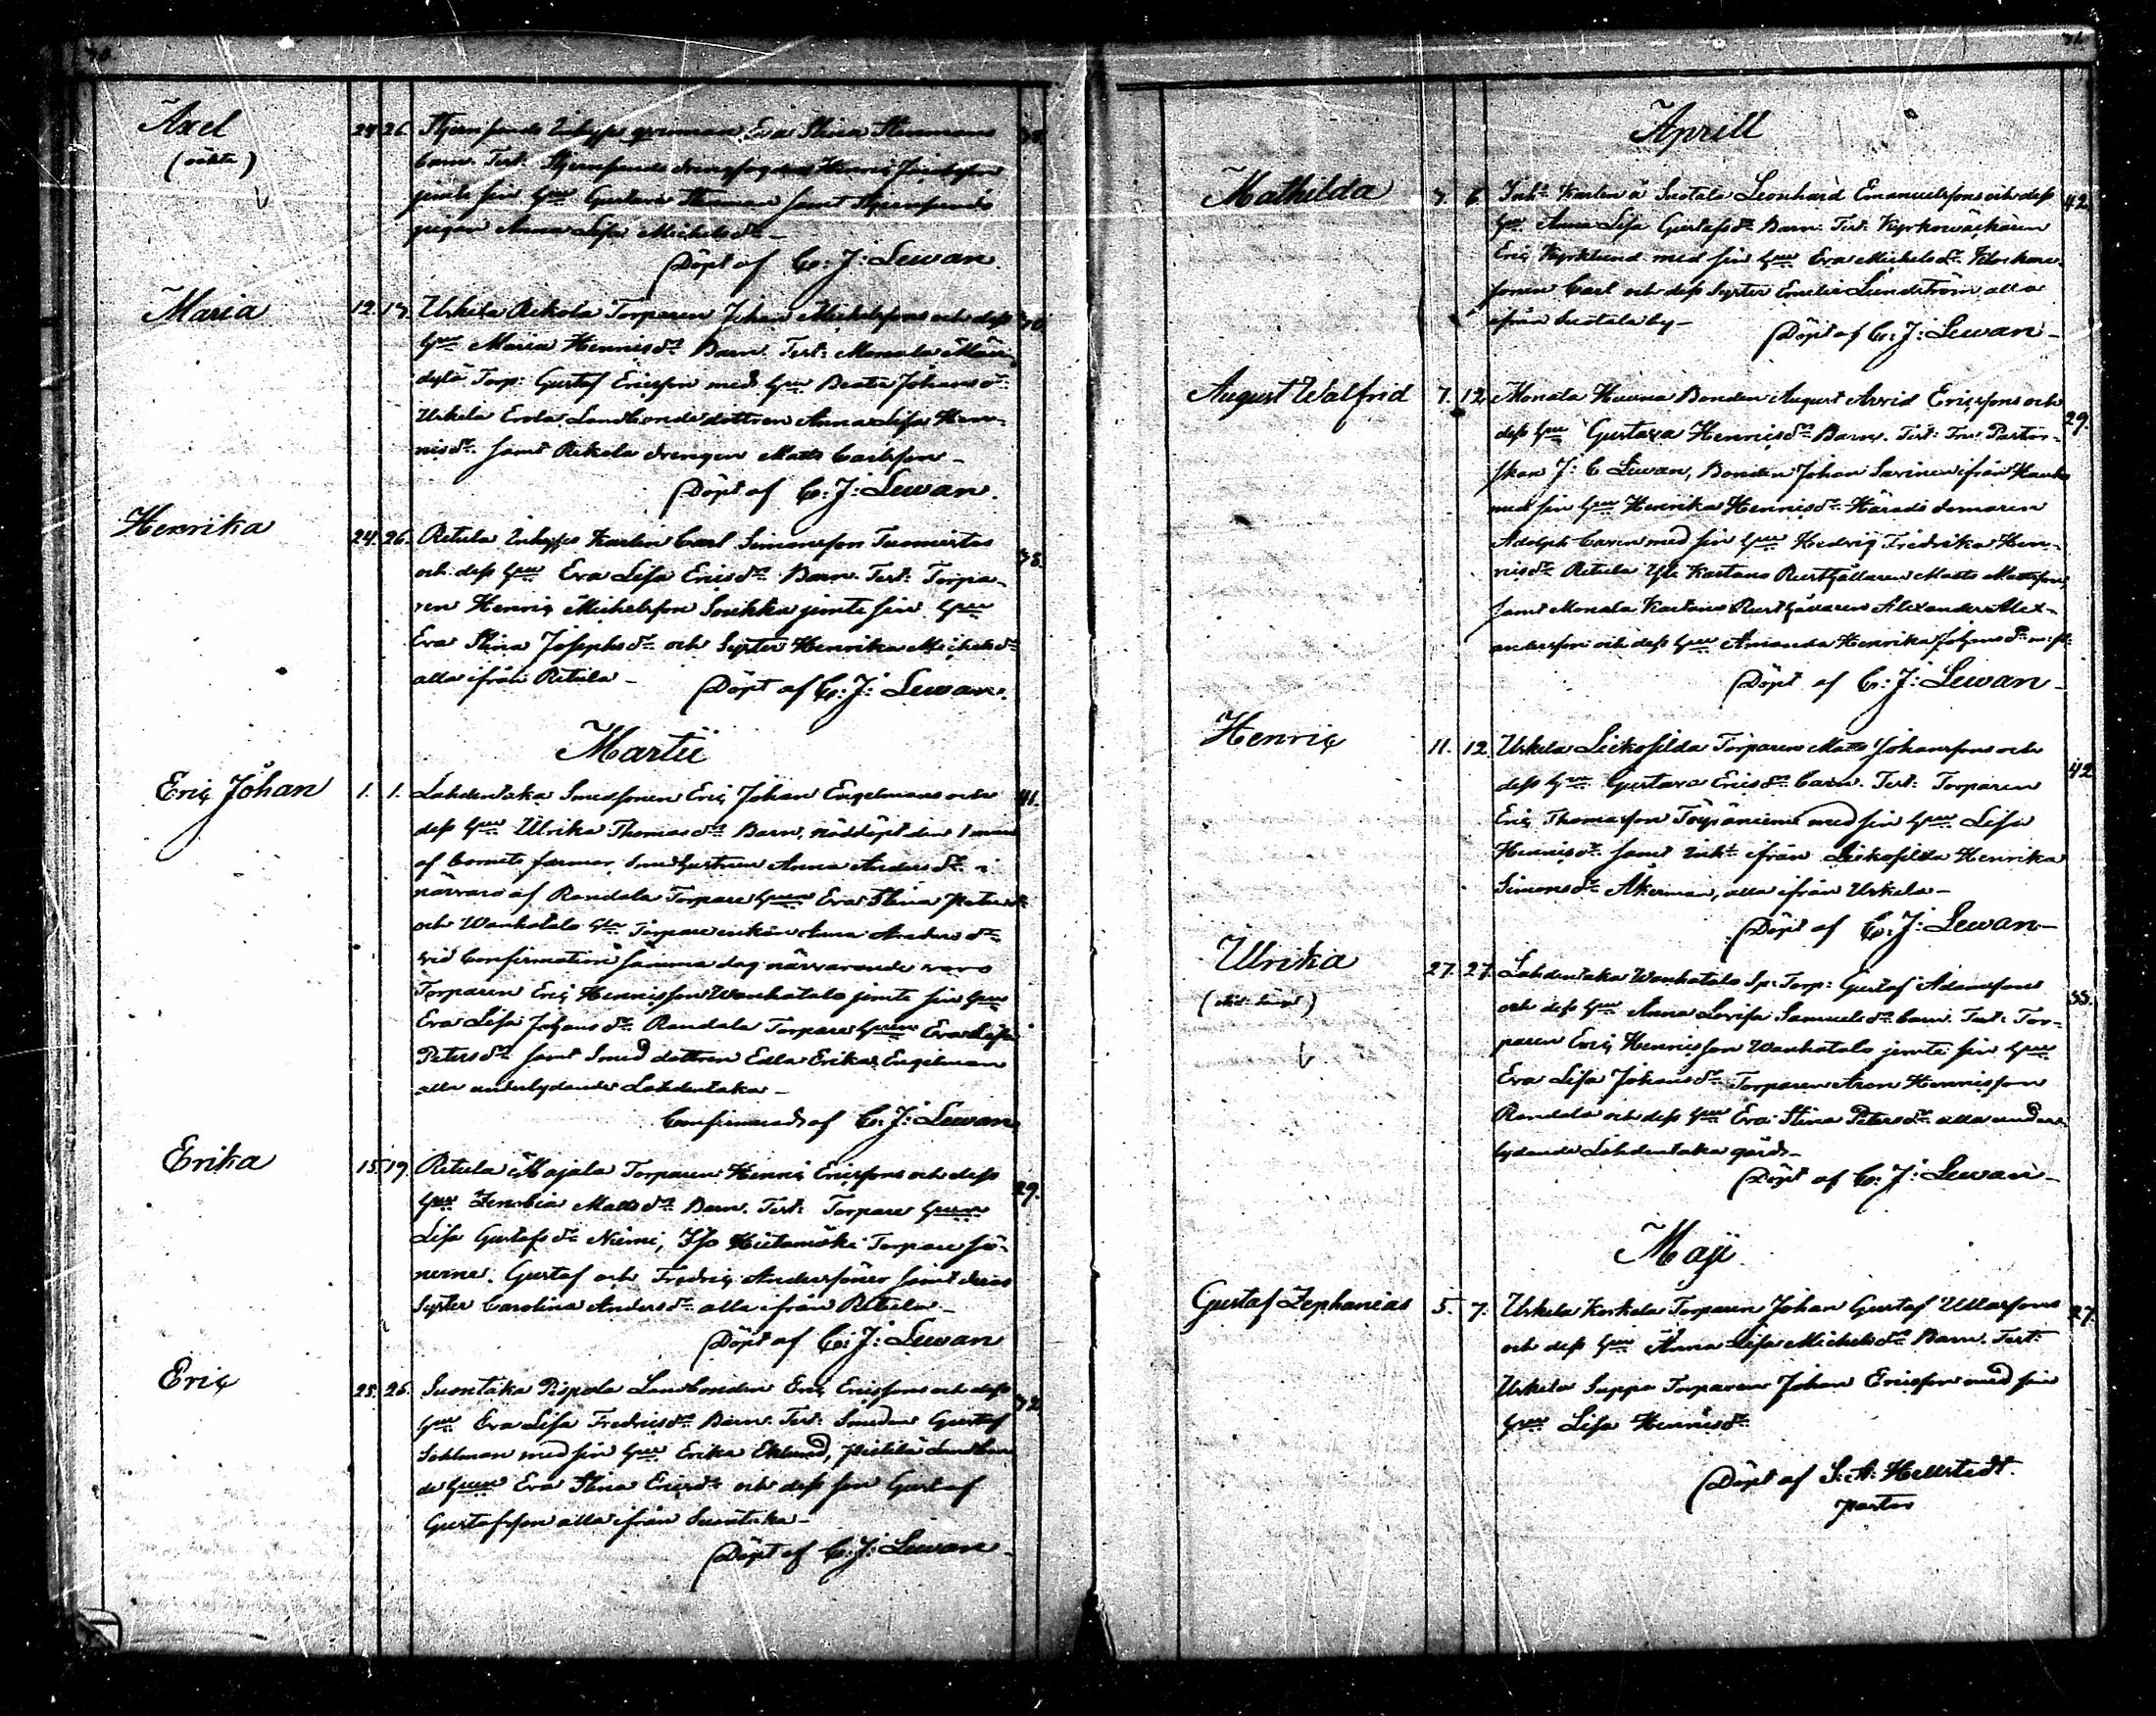 Axel 24. 26. Stjernsunds Inhyses qvinnan Eva Stina Stenmans
(oäkta) barn. Test: Stjernsunds
jemte sin hu Gustava Stenman samt Stjernsunds
pigan Anna Lisa Michelsdr
Döpt af C: J: Lewan.
Maria 12. 17. Urkela Rekola Torparen Johan Michelssons och dess
hu Maria Henricsdr Barn. Test: Monala
Torp: Gustaf Ericsson med hu Beata Johansdr
Urkela Erola Landbonde dottren Anna Lisa Hen-
ricsdr samt Rekola drengen Matts Carlsson
Döpt af C: J: Lewan.
Henrika 24. 26. Retula Inhyses Karlen Carl Simonsson
och dess hu Eva Lisa Ericsdr Barn. Test: Torpa-
ren Henric Michelsson jemte sin hu
Eva Stina Josephsdr och Syster Henrika Michelsdr
alla ifrån Retula – Döpt af C: J: Lewan.
Martii
Eric Johan 1. 1. Lahdentaka Smedsonen Eric Johan Engelmans och 41.
dess hu Ulrika Thomasdr Barn, nöddöpt den 1 mars
af barnets farmor, Smedhustrun Anna Andersdr i
närvaro af Randala Torpare hun Eva Stina Petersdr
och Wanhatalo Torpare enkan Anna Andersdr
vid Confirmation samma dag närvarande voro
Torparen Eric Henricsson Wanhatalo jemte sin hu
Eva Lisa Johansdr Randala Torpare hun Eva Lisa
Petersdr samt Smed dottren Edla Erika Engelman
alla underlydande Lahdentaka –
Confirmerad af C: J: Lewan
Erika 15. 19. Retula Majala Torparen Henric Ericssons och dess 29.
hu Zenobia Mattsdr Barn. Test: Torpare hun
Lisa Gustafsdr Niemi, Iso Hietamäki Torpare sö-
nerne Gustaf och Fredric Anderssöner samt deras
Syster Carolina Andersdr alla ifrån Retula –
Döpt af C: J: Lewan
Eric 25. 26. Suontaka Pispala Landbonden Eric Ericssons och dess 32.
hu Eva Lisa Fredricsdr Barn. Test: Smeden Gustaf
Sahlman med sin hu Erika Eklund, Landbon-
de hun Eva Stina Ericsdr och dess son Gustaf
Gustafsson alla ifrån Suontaka –
Döpt af C: J: Lewan –
Aprill
Mathilda 3. 6. Inh: Karlen å Suotala Leonhard Emanuelssons och dess 42.
hu Anna Lisa Gustafsdr Barn. Test: Kyrkowäktaren
Eric Kyrklund med sin hu Eva Michelsdr Klockare
sonen Carl och dess Syster Emelie Lundström alla
ifrån Suotala by – Döpt af C: J: Lewan –
August Walfrid 7. 12. Monala Bonden August Arvid Ericssons och 29.
dess hu Gustava Henricsdr Barn. Test: Fru Pastor-
skan J: C Lewan, Bonden Johan Savinen ifrån
med sin hu Henrika Henricsdr Härads domaren
Adolph med sin hu Hedvig Fredrika Hen-
ricsdr Retula Yli Kartano Rusthållaren Matts Mattsson,
samt Monala Kartano Rusthållaren Alexander Alex-
andersson och dess hu Amanda Henrika Johansdr
Döpt af C: J: Lewan –
Henric 11. 12. Urkela Torparen Matts Johanssons och 42
dess hu Gustava Ericsdr barn. Test: Torparen
Eric Thomasson med sin hu Lisa
Henricsdr samt Inh: ifrån Henrika
Simonsdr Åkerman, alla ifrån Urkela –
Döpt af C: J: Lewan –
Ulrika 27. 27. Lahdentaka Wanhatalo Sp: Torp: Gustaf Adamssons 35.
och dess hu Anna Lovisa Samuelsdr barn. Test: Tor-
paren Eric Henricsson Wanhatalo jemte sin hu
Eva Lisa Johansdr Torparen Aron Henricsson
Randala och dess hu Eva Stina Petersdr alla under-
lydande Lahdentaka gård –
Döpt af C: J: Lewan –
Maji
Gustaf Zephanias 5. 7. Urkela Korkela Torparen Johan Gustaf Ullassons 27.
och dess hu Anna Lisa Michelsdr Barn. Test:
Urkela Suppa Torparen Johan Ericsson med sin
hu Lisa Henricsdr
Döpt af S: A: Hellstedt.
pastor